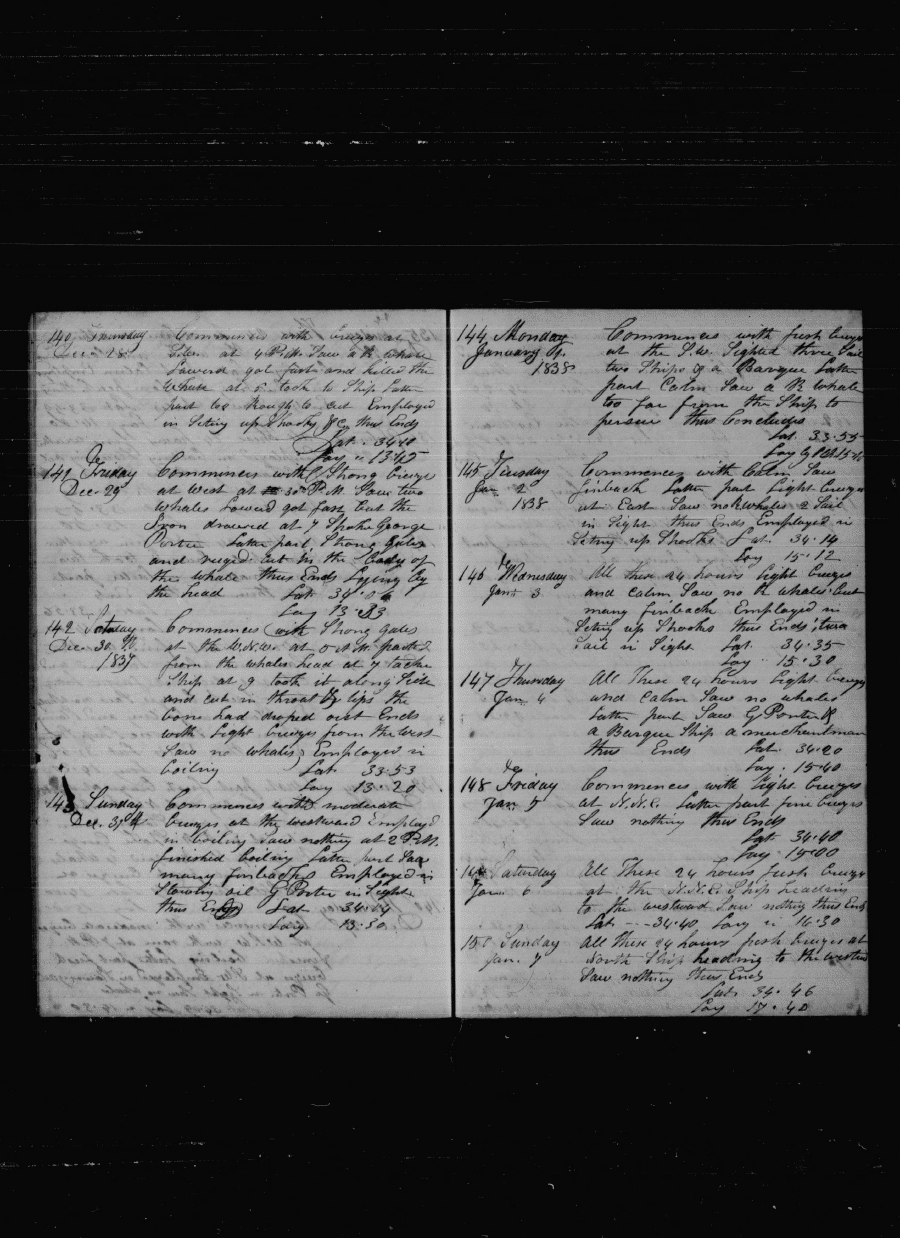 140 Thursday Commences with breezes at
Dec. 28 at 4 P.M. Saw a R whale
Lowered got fast and killed the
Whale at 5 took to Ship Latter
part too Rough to cut Employed
in Seting up Shooks &c thus Ends
Lat. 34.10
Lay " 13.45
141 Friday Commences with Strong breezes
Dec. 29 at West at 30 P.M. Saw two
whales Lowered got fast but the
Iron drawed at 7 Spoke George
Porter Latter part Strong Gales
and ruged cut in the body of
the whale thus Ends Lying by
the head Lat 34.0
Lay 13.33
142 Saturday Commences with Strong Gales
Dec. 30 at the W.N.W. at 0 A.M. parted
1837 from the whales head at 7 tacked
Ship at 9 took it along Side
and cut in throat & lips the
bone had droped out Ends
with Light breezes from the West
Saw no whales Employed in
boiling Lat 33.53
Lay 13.20
143 Sunday Commences with moderate
Dec. 31 breezes at the westward Employed
in boiling Saw nothing at 2 P.M.
finished boiling Latter part Saw
many finbacks Employed in
Stowing oil G Porter in Sight
thus Ends Lat 34.14
Lay 13.30
144 Monday Commences with fresh breezes
January at the S.W. Sighted three Sail
1838 two Ships & a Barque Latter
part Calm Saw a R whale
too far from the Ship to
persue thus Concludes
Lat. 33.55
Lay by
145 Tuesday Commences with Calm Saw
Jan. 2 finback Latter part Light breezes
1838 at East Saw no R whales 2 Sail
in Sight thus Ends Employed in
Seting up Shooks Lat. 34.14
Lay 15.12
146 Wednesday All these 24 hours light breezes
Jan. 3 and calm Saw no R whales but
many finbacks Employed in
Seting up Shooks thus Ends two
Sail in Sight Lat. 34.35
Lay. 15.30
147 Thursday All These 24 hours Light breezes
Jan. 4 and Calm Saw no whales
Latter part Saw G Porter &
a Barque Ship a merchantman
thus Ends Lat. 34.20
Lay. 15.40
148 Friday Commences with Light breezes
Jan. 5 at N.N.E. Latter part fine breezes
Saw nothing thus Ends
Lat 34.40
Lay. 15.00
Saturday All These 24 hours fresh breezes
Jan. 6 at the N.N.E. Ship heading
to the westward Saw nothing thus Ends
Lat. 34.40, Lay " 16.30
150 Sunday All these 24 hours fresh breezes at
Jan. 7 North Ship heading to the westward
Saw nothing thus Ends
Lat. 34.46
Lay 17.40